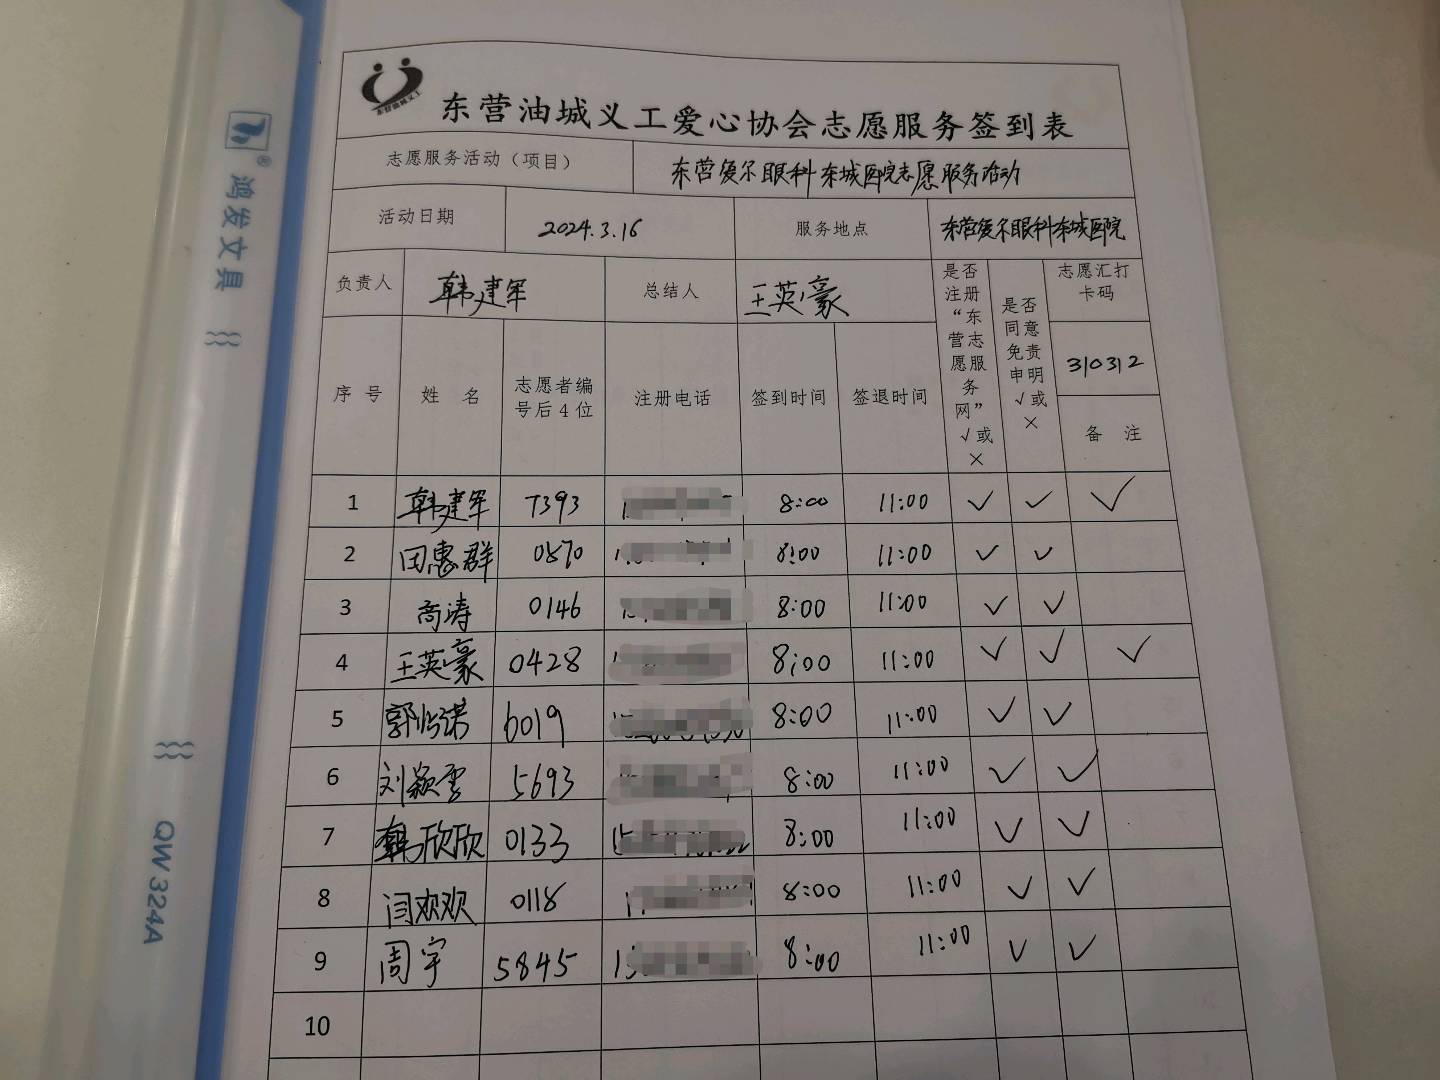 东营油城义工
东营油城义工爱心协会志愿服务签到表
志愿服务活动（项目） 东营爱尔眼科东城医院志愿服务活动
活动日期 2024.3.16 服务地点 东营爱尔眼科东城医院
负责人 韩建军 总结人 王英豪
是否
注册
“东
营志
愿服
务
网”
√或
×
是否
同意
免责
申明
√或
×
志愿汇打
卡码
310312
备 注
序 号 姓 名 志愿者编
号后4位 注册电话 签到时间 签退时间
1 韩建军 7393 8:00 11:00 ✓ ✓ ✓
2 田惠群 0870 8:00 11:00 ✓ ✓
3 高涛 0146 8:00 11:00 ✓ ✓
4 王英豪 0428 8:00 11:00 ✓ ✓ ✓
5 郭怡诺 6019 8:00 11:00 ✓ ✓
6 刘颖雪 5693 8:00 11:00 ✓ ✓
7 韩欣欣 0133 8:00 11:00 ✓ ✓
8 闫欢欢 0118 8:00 11:00 ✓ ✓
9 周宇 5845 8:00 11:00 ✓ ✓
10
®
鸿发文具
QW324A